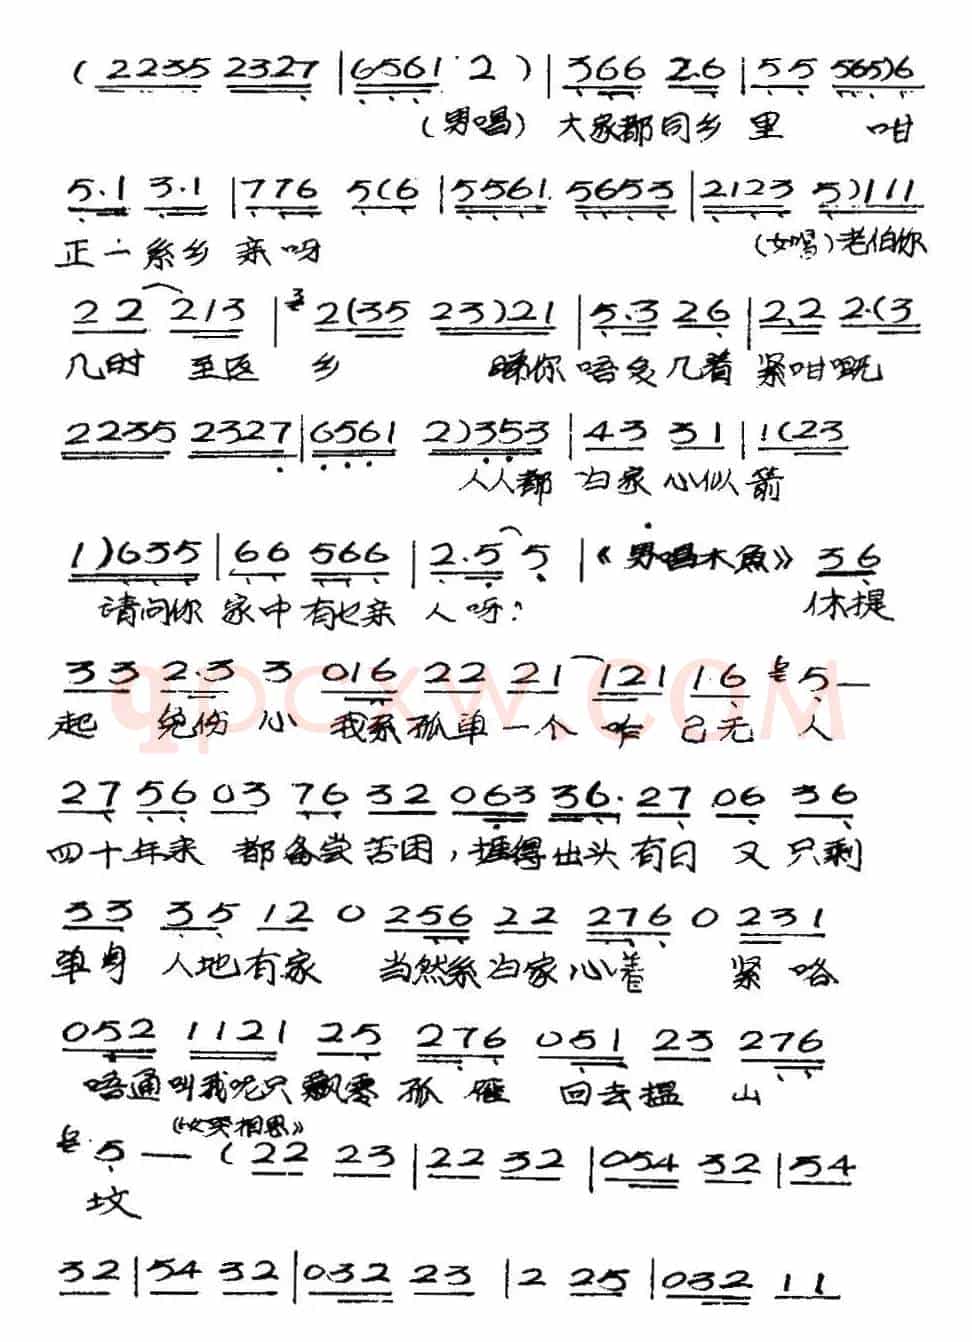 (2235 2327 | 6561· 2 ) | 366 2·6 | 55 565)6
(男唱) 大家都同乡 里 咁
5·1 3·1 | 776 5(6 | 5561 5653 | 2123 5)111
正一系乡 亲呀 (女唱)老伯你
22 213 | 3 2(35 23)21 | 5·3 26 | 22 2·(3
几时 至返 乡 睇你唔多几着紧咁嘅
2235 2327 | 6561 2)353 | 43 31 | 1(23
人人都 归家心似箭
1)635 | 66 566 | 2·5 5 | 《男唱木魚》 36
请问你 家中有乜亲 人呀? 休提
33 2·3 3 016 22 21 121 16 5—
起 绝伤 心 我系孤单一个 咋 已无 人
27 56 03 76 32 063 36· 27 06 36
四十年来 都备尝苦困，捱得出头有日 又 只剩
33 35 12 0 256 22 276 0 231
单身 人地有家 当然系归家心着 紧 咯
052 1121 25 276 051 23 276
唔通叫我呢只飘零 孤 雁 回去揾 山
《女哭相思》
5 — (22 23 | 22 32 | 054 32 | 54
坟
32 | 54 32 | 032 23 | 2 25 | 032 11
qpcxw.com